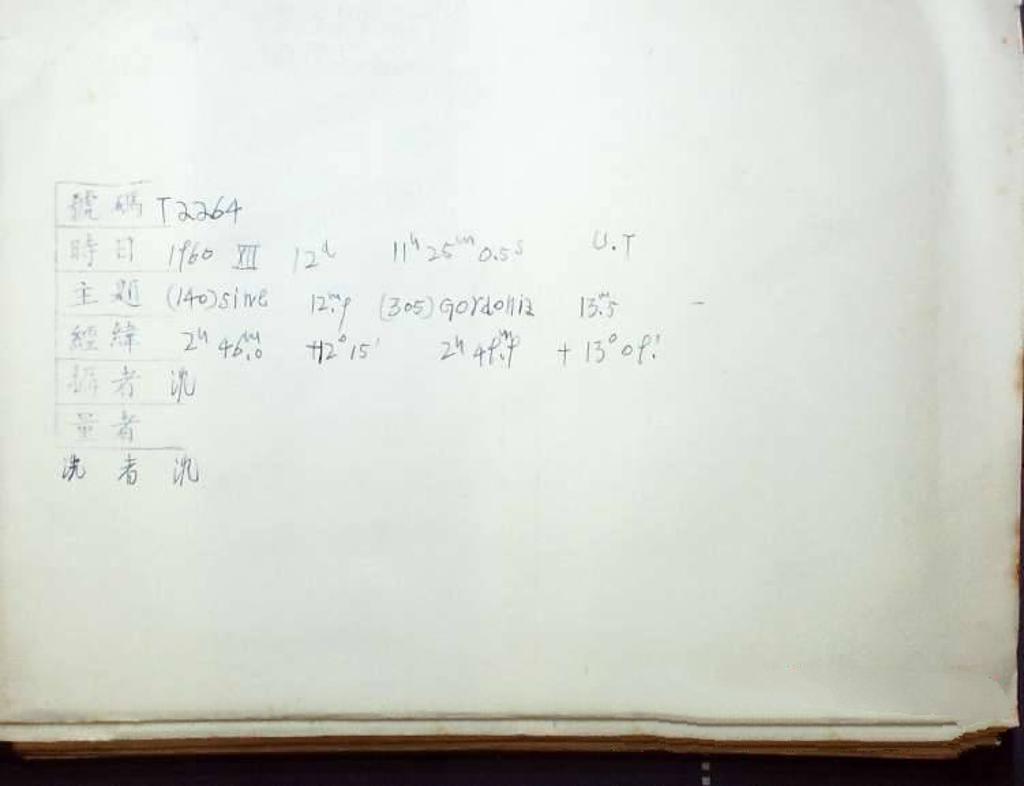 號碼 T2264
時日 1960 XII 12ᵈ 11ʰ 25ᵐ 0.5ˢ U.T
主題 (140) sive 12ᵐ.9 (305) Gordonia 13ᵐ.5 -
經緯 2ʰ 46ᵐ.0 +12°15′ 2ʰ 49ᵐ.9 +13°09′
攝者 沈
量者
洗者 沈